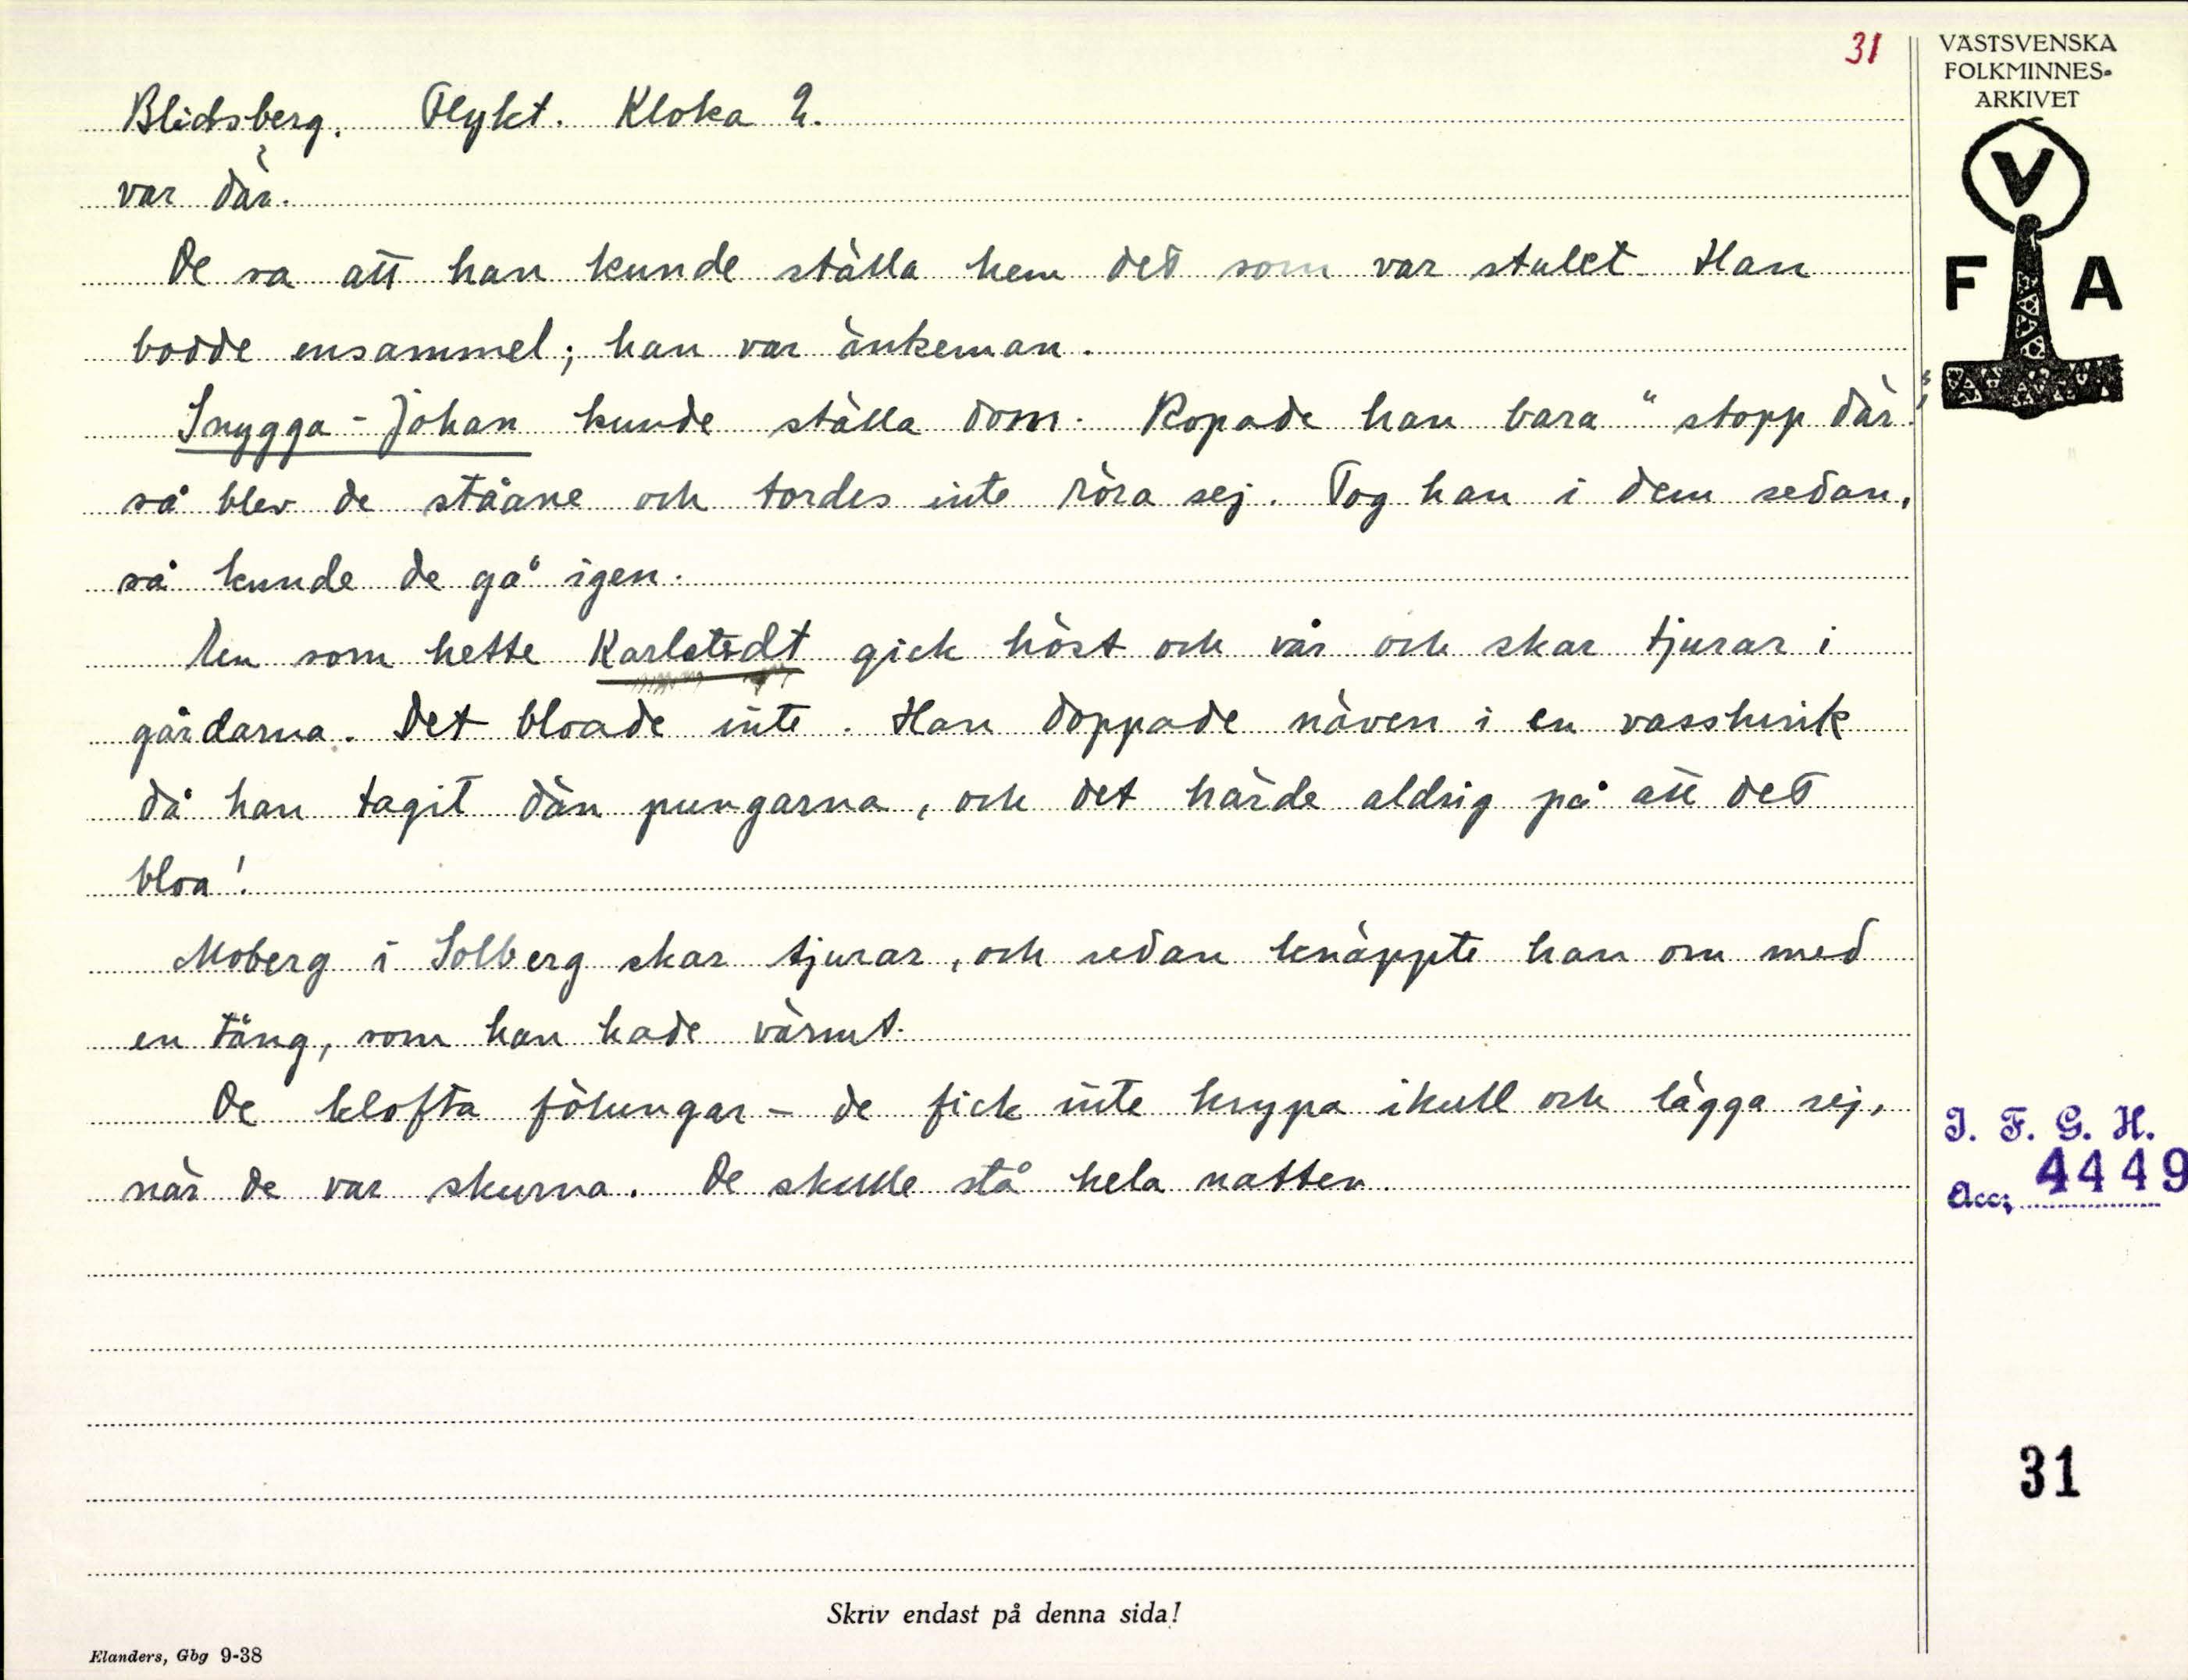 31
VÄSTSVENSKA
FOLKMINNES-
ARKIVET
V
F A
Blidsberg. Flykt. Kloka 2.
var där.
De sa att han kunde ställa hem det som var stulet Han
bodde ensammel; han var änkeman.
Snygga-Johan kunde ställa dom. Ropade han bara "stopp där!"
så blev de ståane och tordes inte röra sej. Tog han i dem sedan,
så kunde de gå igen.
Den som hette Karlstedt gick höst och vår och skar tjurar i
gårdarna. Det bloade inte. Han doppade näven i en vasshink
då han tagit dän pungarna, och det härde aldrig på att det
bloa!
Moberg i Solberg skar tjurar, och sedan knäppte han om med
en tång, som han hade värmt.
De klofta fölungar - de fick inte krypa ikull och lägga sej,
när de var skurna. De skulle stå hela natten.
I. F. G. H.
Acc; 4449
31
Skriv endast på denna sida!
Elanders, Gbg 9-38